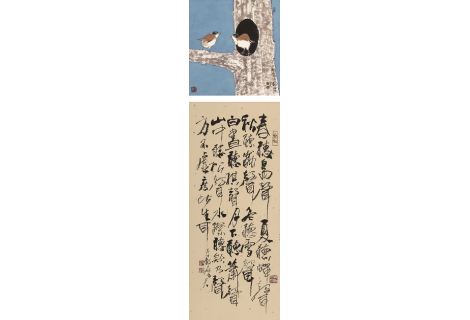 春聽鳥聲 夏聽蟬聲
秋聽蟲聲 冬聽雪聲
白晝聽棋聲 月下聽簫聲
山中聽松聲 水際聽欸乃聲
方不虛度此生耳